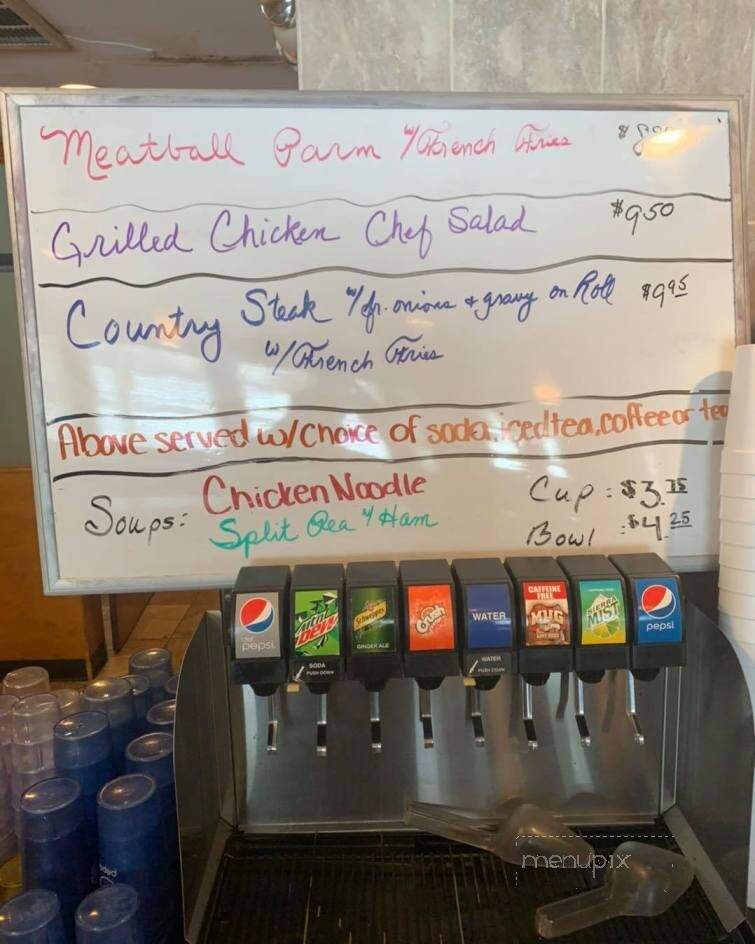 Meatball Parm w/French Fries
Grilled Chicken Chef Salad $9.50
Country Steak w/fr. onions + gravy on Roll $9.95
w/French Fries
Above served w/choice of soda, iced tea, coffee or tea
Soups: Chicken Noodle Cup: $3.75
Split Pea & Ham Bowl: $4.25
diet pepsi
Mtn Dew
SODA
PUSH DOWN
Schweppes
GINGER ALE
Crush
WATER
WATER
PUSH DOWN
CAFFEINE FREE
MUG
ROOT BEER
SIERRA MIST
pepsi
pepsi
menupix